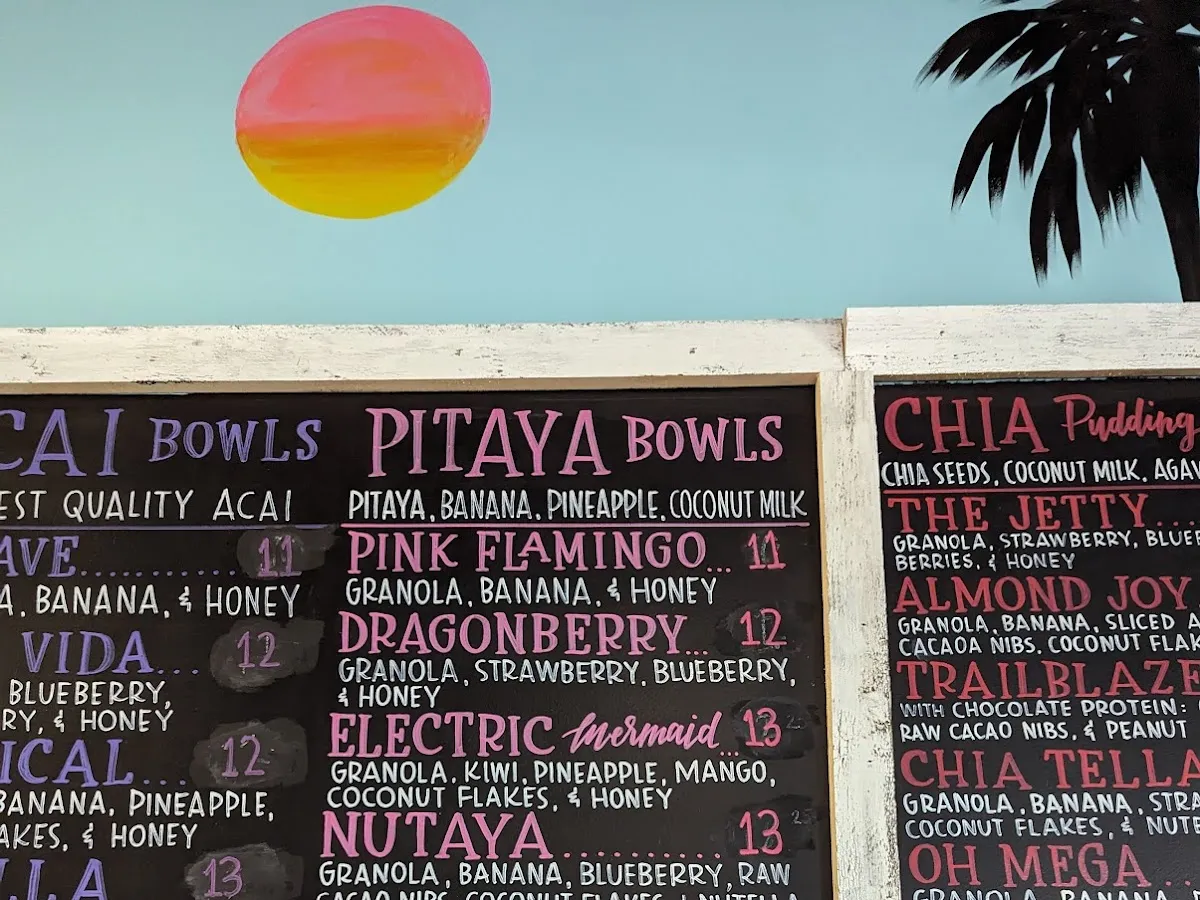 BOWLS
QUALITY ACAI
11
BANANA, & HONEY
VIDA... 12
BLUEBERRY,
& HONEY
12
BANANA, PINEAPPLE,
& HONEY
13
PITAYA BOWLS
PITAYA, BANANA, PINEAPPLE, COCONUT MILK
PINK FLAMINGO... 11
GRANOLA, BANANA, & HONEY
DRAGONBERRY... 12
GRANOLA, STRAWBERRY, BLUEBERRY,
& HONEY
ELECTRIC Mermaid... 13
GRANOLA, KIWI, PINEAPPLE, MANGO,
COCONUT FLAKES, & HONEY
NUTAYA.......... 13
GRANOLA, BANANA, BLUEBERRY, RAW
CACAO NIBS, COCONUT FLAKES, & NUTELLA
CHIA Pudding
CHIA SEEDS, COCONUT MILK, AGAV
THE JETTY...
GRANOLA, STRAWBERRY, BLUEB
BERRIES, & HONEY
ALMOND JOY
GRANOLA, BANANA, SLICED A
CACAOA NIBS, COCONUT FLAK
TRAILBLAZE
WITH CHOCOLATE PROTEIN:
RAW CACAO NIBS, & PEANUT
CHIA TELLA
GRANOLA, BANANA, STRA
COCONUT FLAKES, & NUTE
OH MEGA..
GRANOLA, BANANA,